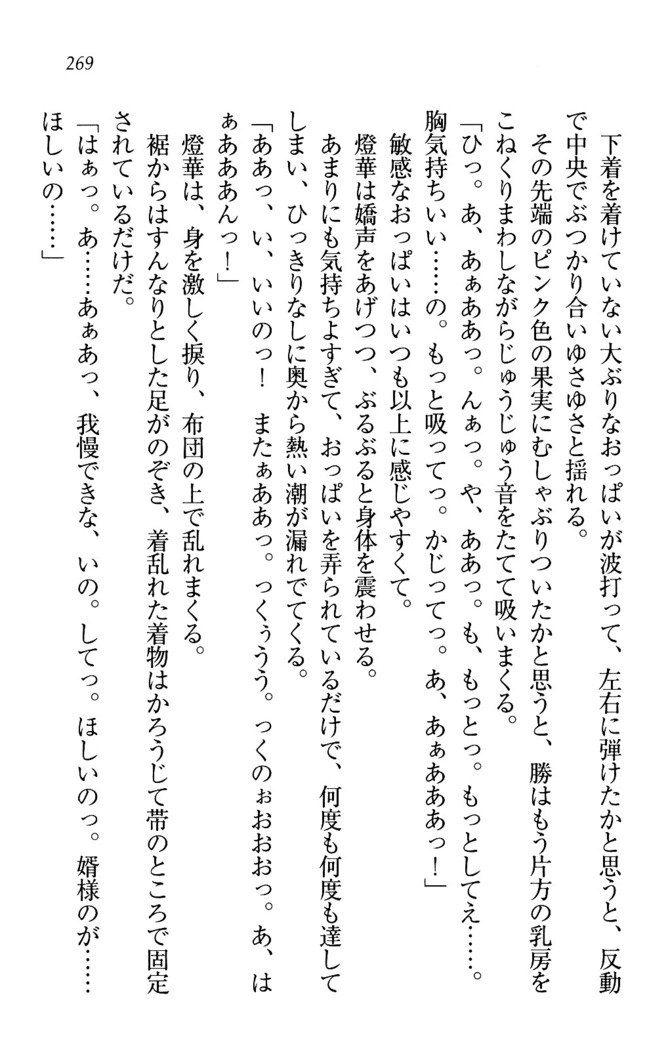 269
下着を着けていない大ぶりなおっぱいが波打って、左右に弾けたかと思うと、反動
で中央でぶつかり合いゆさゆさと揺れる。
その先端のピンク色の果実にむしゃぶりついたかと思うと、勝はもう片方の乳房を
こねくりまわしながらじゅうじゅう音をたてて吸いまくる。
「ひっ。あ、あぁああっ。んぁっ。や、ああっ。も、もっとっ。もっとしてえ……。
胸気持ちいい……の。もっと吸ってっ。かじってっ。あ、あぁあああっ！」
敏感なおっぱいはいつも以上に感じやすくて。
燈華は嬌声をあげつつ、ぶるぶると身体を震わせる。
あまりにも気持ちよすぎて、おっぱいを弄られているだけで、何度も何度も達して
しまい、ひっきりなしに奥から熱い潮が漏れでてくる。
「ああっ、い、いいのっ！　またぁああっ。っくぅうう。っくのぉおおおっ。あ、は
ぁあああんっ！」
燈華は、身を激しく捩り、布団の上で乱れまくる。
裾からはすんなりとした足がのぞき、着乱れた着物はかろうじて帯のところで固定
されているだけだ。
「はぁっ。あ……あぁあっ、我慢できな、いの。してっ。ほしいのっ。婿様のが……
ほしいの……」